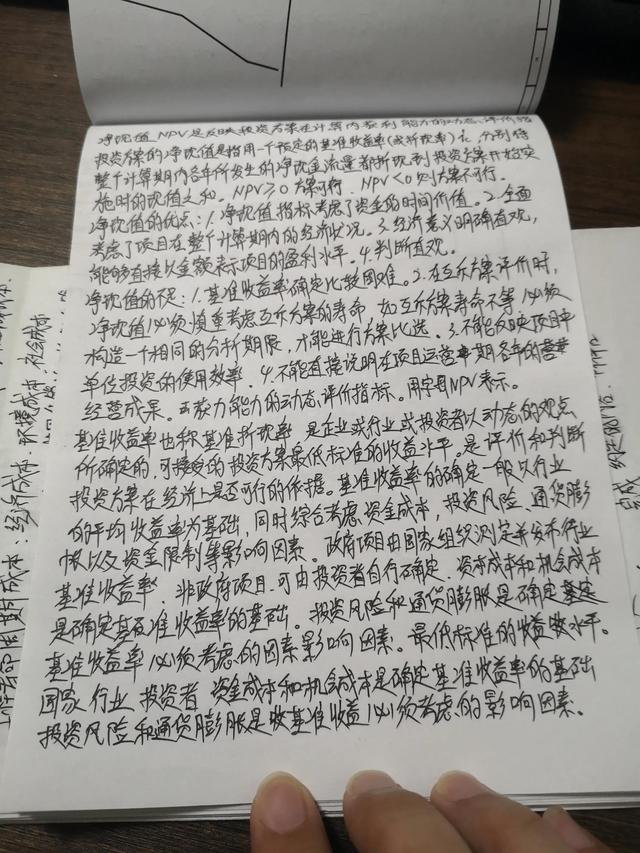 净现值NPV是反映投资方案在计算期内获利能力的动态评价指
投资方案的净现值是指用一个预定的基准收益率(或折现率)ic,分别将
整个计算期内各年所发生的净现金流量都折现到投资方案开始实
施时的现值之和。NPV≥0方案可行.NPV<0则方案不可行.
净现值的优点:1.净现值指标考虑了资金的时间价值。2.全面
考虑了项目在整个计算期内的经济状况。3.经济意义明确直观,
能够直接以金额表示项目的盈利水平。4.判断直观。
净现值的不足:1.基准收益率确定比较困难。2.在互斥方案评价时,
净现值必须慎重考虑互斥方案的寿命 如互斥方案寿命不等 必须
构造一个相同的分析期限,才能进行方案比选。3.不能反映项目中
单位投资的使用效率.4.不能直接说明在项目运营期各年的
经营成果。 获力能力的动态评价指标。用字母NPV表示。
基准收益率也称基准折现率,是企业或行业或投资者以动态的观点
所确定的,可接受的投资方案最低标准的收益水平。是评价和判断
投资方案在经济上是否可行的依据。基准收益率的确定一般以行业
的平均收益率为基础,同时综合考虑资金成本,投资风险、通货膨
帐以及资金限制等影响因素。政府项目由国家组织测定并发布行业
基准收益率.非政府项目.可由投资者自行确定.资本成本和机会成本
是确定基准收益率的基础。投资风险和通货膨胀是确定
基准收益率必须考虑的因素影响因素。最低标准的收益水平。
国家 行业 投资者 资金成本和机会成本是确定基准收益率的基础
投资风险和通货膨胀是收基准收益必须考虑的影响因素。
经济成本.环境成本.社会成本